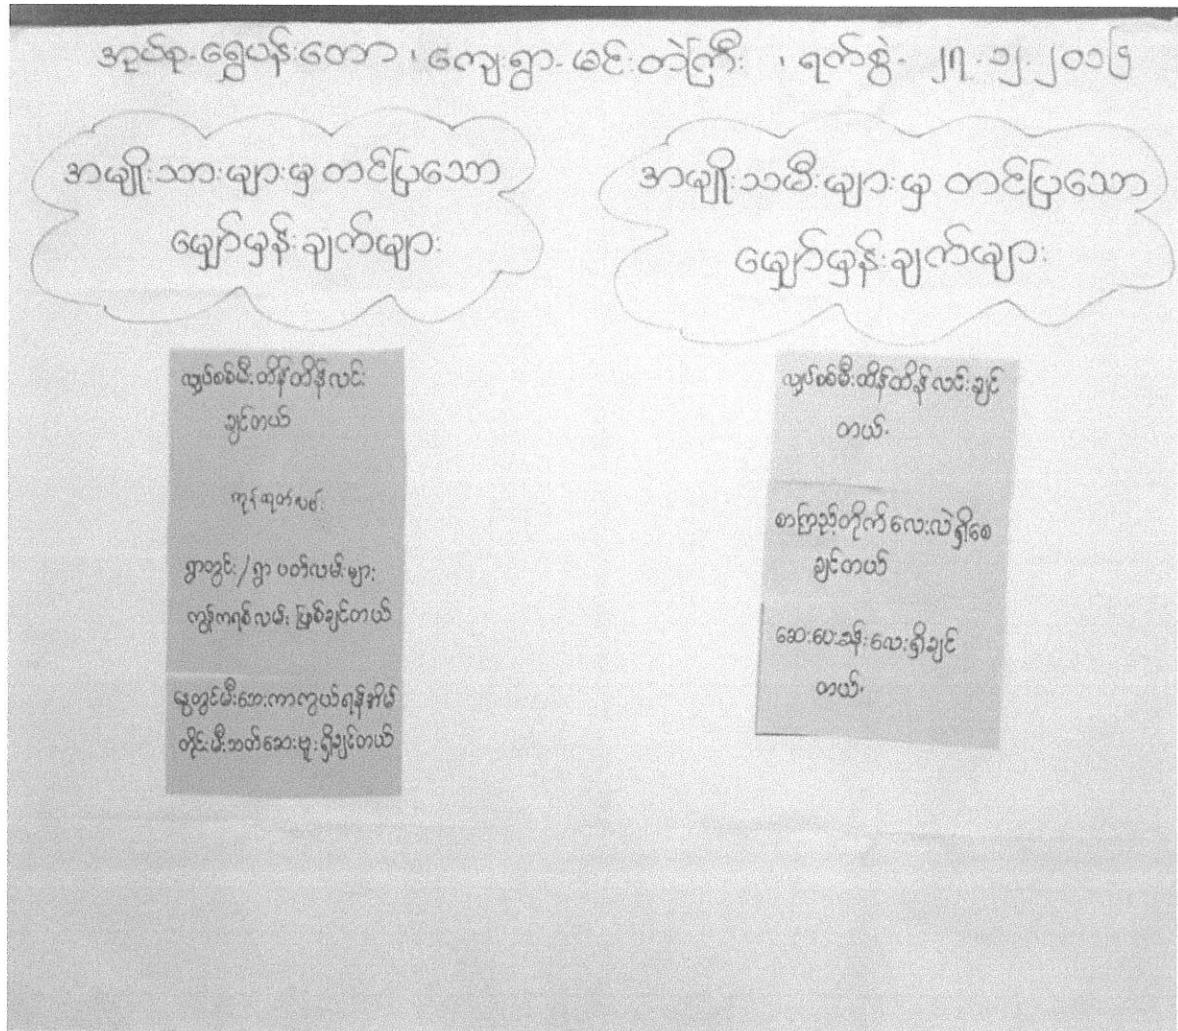 အုပ်စု-ရွှေပန်းတော၊ ကျေးရွာ-မင်းတဲကြီး ၊ ရက်စွဲ- ၂၇.၁၂.၂၀၁၆
အမျိုးသားများမှ တင်ပြသော
မျှော်မှန်းချက်များ
လျှပ်စစ်မီးထိန်ထိန်လင်း
ချင်တယ်
ကုန်ထုတ်လမ်း
ရွာတွင်း/ရွာပတ်လမ်းများ
ကွန်ကရစ်လမ်းဖြစ်ချင်တယ်
နွေတွင်မီးဘေးကာကွယ်ရန်အိမ်
တိုင်းမီးသတ်ဆေးဗူးရှိချင်တယ်
အမျိုးသမီးများမှ တင်ပြသော
မျှော်မှန်းချက်များ
လျှပ်စစ်မီးထိန်ထိန်လင်းချင်
တယ်.
စာကြည့်တိုက်လေးလဲရှိစေ
ချင်တယ်
ဆေးပေးခန်းလေးရှိချင်
တယ်.